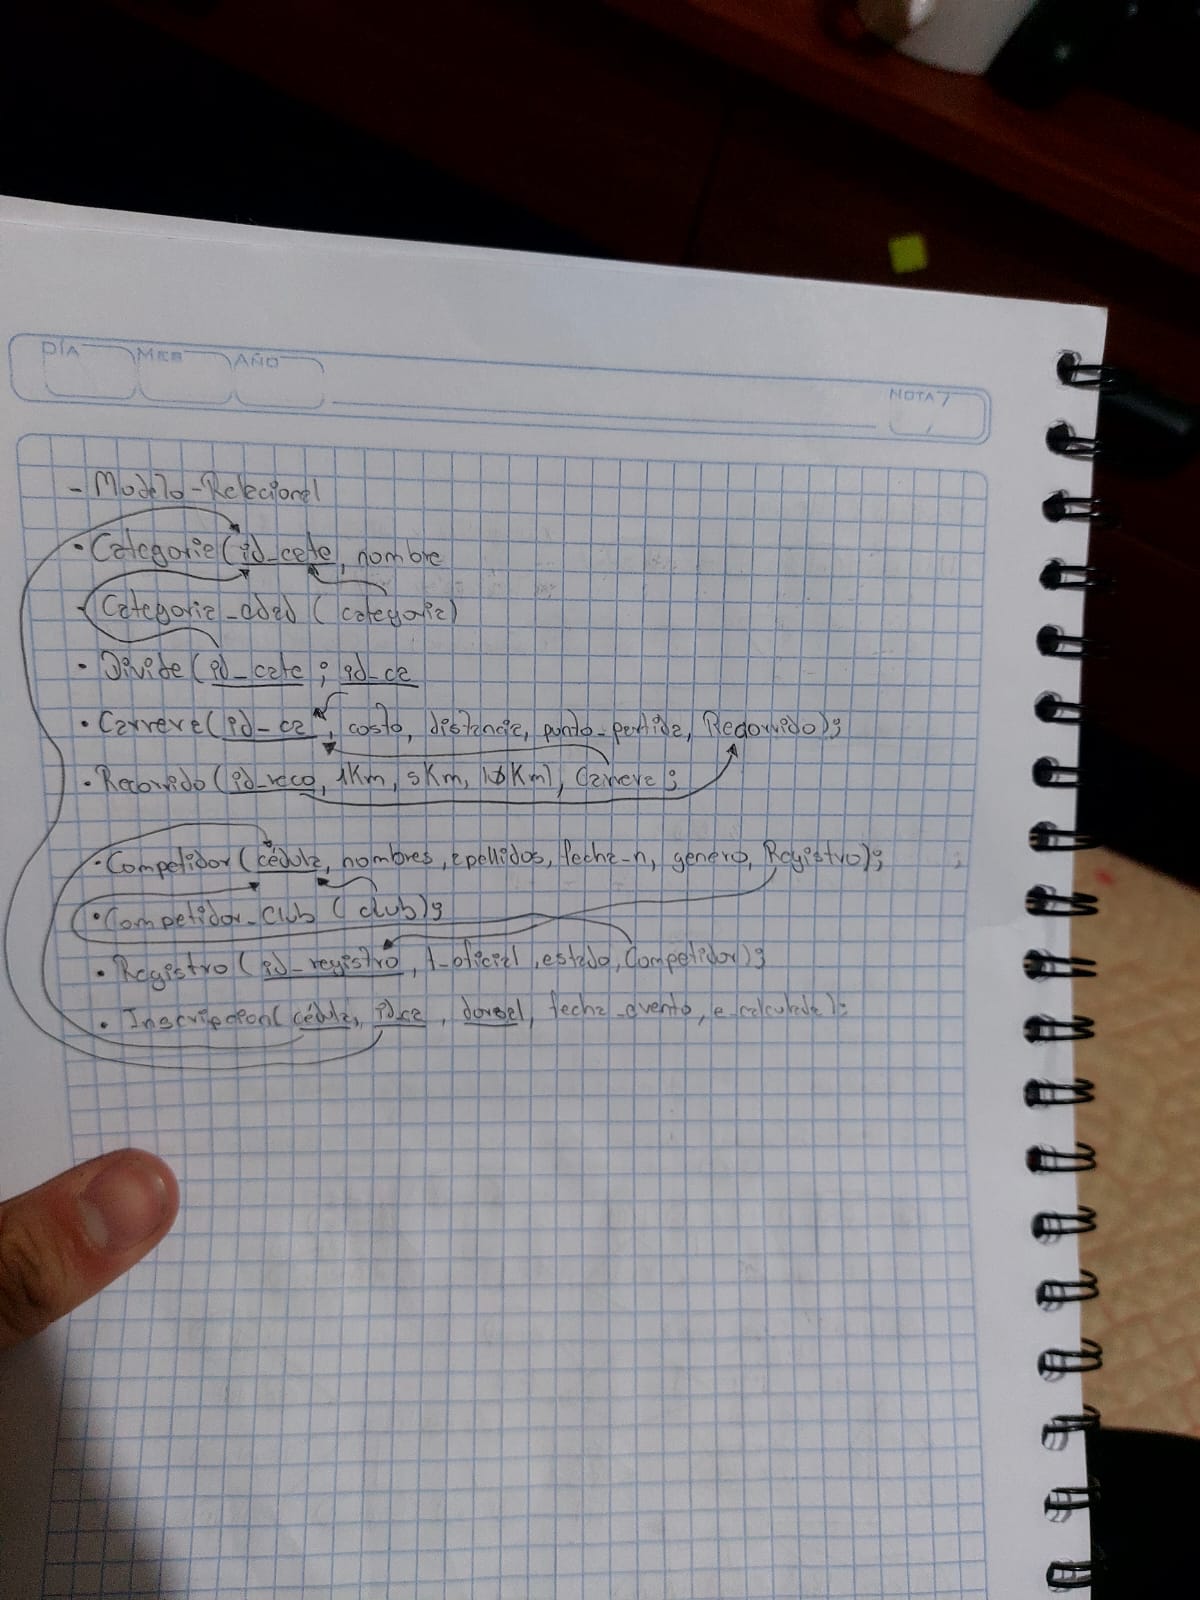 DÍA MES AÑO
NOTA
- Modelo-Relacional
• Categoria (id_cate, nombre
Categoria_edad (categoria)
• Divide (id_cate ; id_ca
• Carrera (id_ca, costo, distancia, punto_partida, Recorrido);
• Recorrido (id_reco, 1Km, 5Km, 10Km), Carrera;
• Competidor (cédula, nombres, apellidos, fecha_n, genero, Registro);
• Competidor_Club (club);
• Registro (id_registro, t_oficial, estado, Competidor);
• Inscripcion (cédula, id_ca, dorsal, fecha_evento, e_calculada);